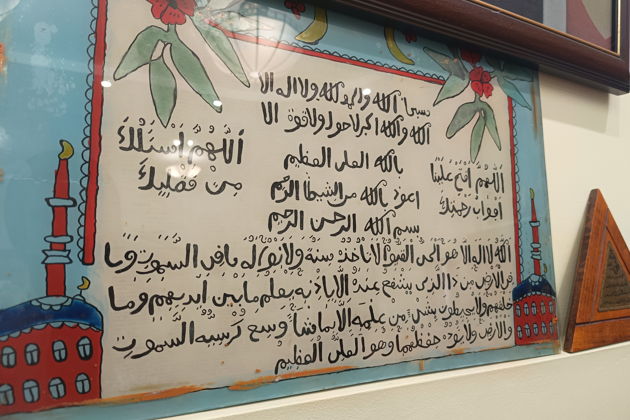 سبحان الله والحمد لله ولا اله الا
الله والله اكبر لا حول ولا قوة الا
بالله العلى العظيم
اللهم افتح علينا
ابواب رحمتك
اعوذ بالله من الشيطان الرجيم
بسم الله الرحمن الرحيم
اللهم اسئلك
من فضلك
الله لا اله الا هو الحى القيوم لا تأخذه سنة ولا نوم له ما فى السموت وما
فى الارض من ذا الذى يشفع عنده الا باذنه يعلم ما بين ايديهم وما
خلفهم ولا يحيطون بشئ من علمه الا بما شآء وسع كرسيه السموت
والارض ولا يؤده حفظهما وهو العلى العظيم